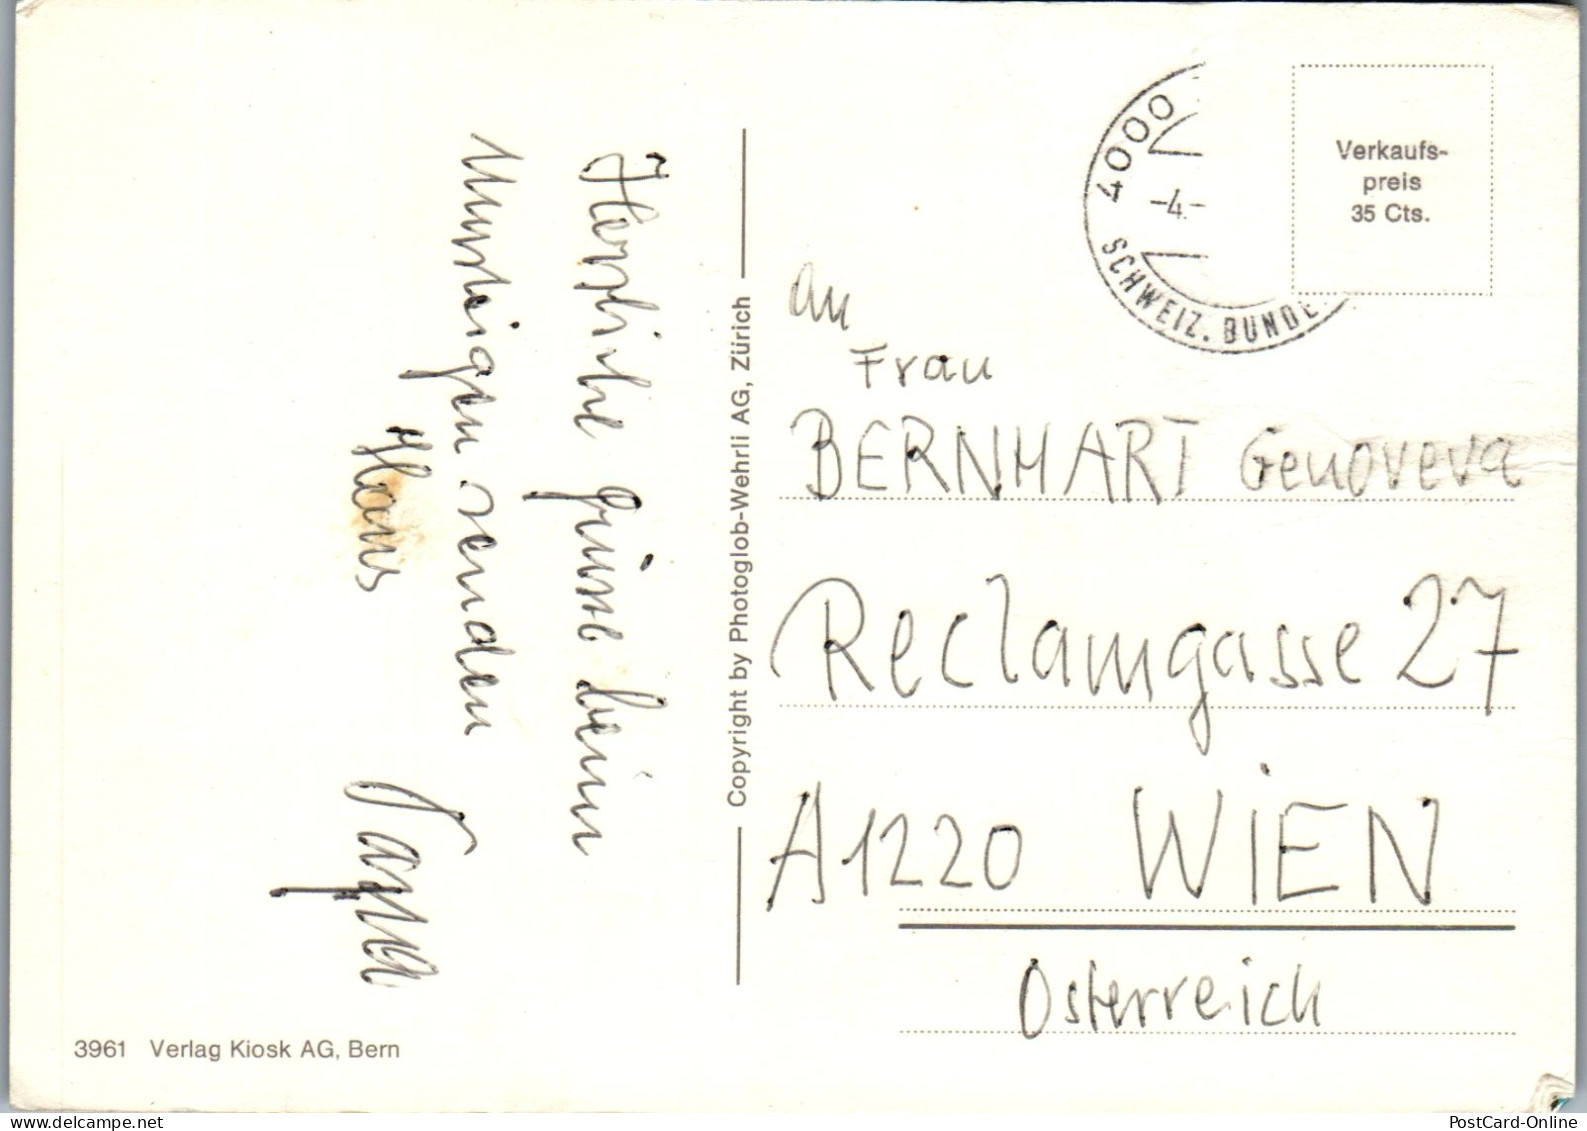 Herzliche Grüsse beim
Umsteigen senden
Hans
4000
-4.-
SCHWEIZ. BUNDE
Verkaufs-
preis
35 Cts.
an
Frau
BERNHART Genoveva
Reclamgasse 27
A1220 WIEN
Österreich
Copyright by Photoglob-Wehrli AG, Zürich
3961 Verlag Kiosk AG, Bern
PostCard-Online